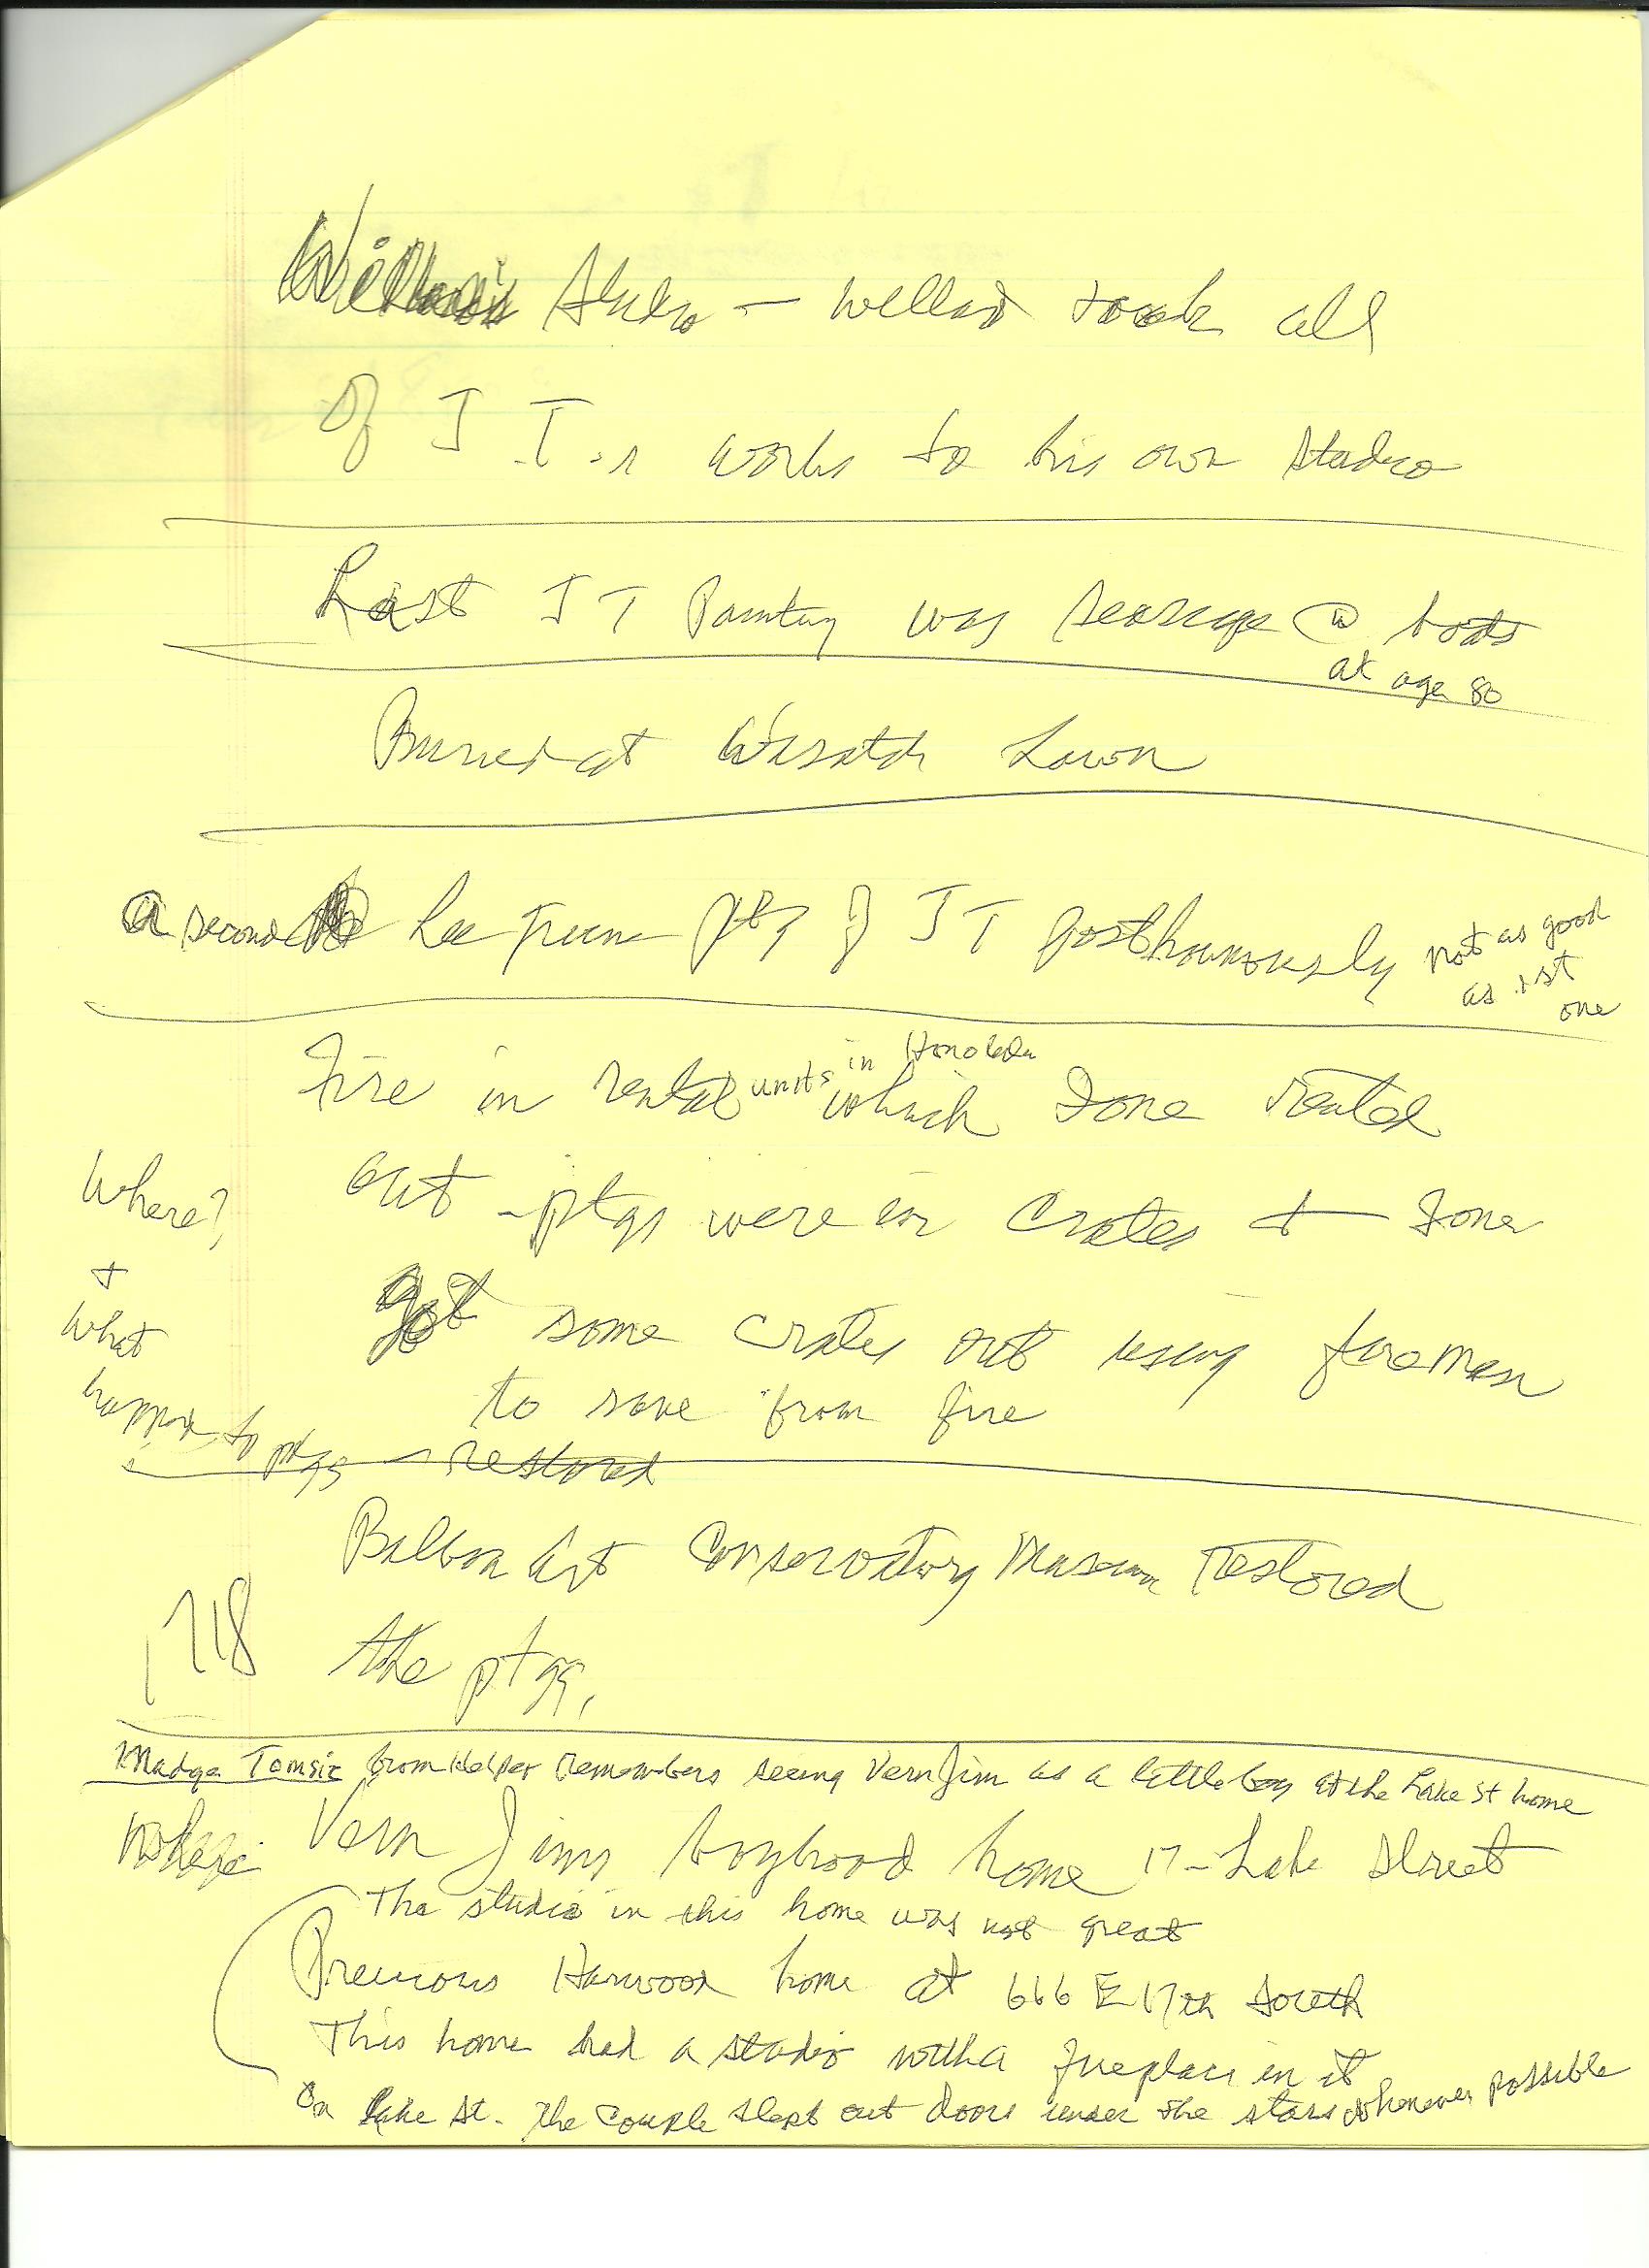 Studio - Willard took all
of J.T.s works to his own studio
Last JT Painting was @ boats
at age 80
Buried at Wasatch Lawn
a second Lee Greene ptg of JT posthumously not as good
as 1st
one
Fire in rental units in Honolulu which Ione rented
out - ptgs were in crates + Ione
got some crates out using firemen
to save from fire
Where?
+
what
happen to ptgs - restored
Balboa Art Conservatory Museum restored
the ptgs.
1718
Madge Tomsic from Helper remembers seeing Vern Jim as a little boy at the Lake St home
Where: Vern Jims boyhood home 17 - Lake Street
The studio in this home was not great
Previous Harwood home at 666 E 17th South
This home had a studio with a fireplace in it
On Lake St. the couple slept out doors under the stars whenever possible